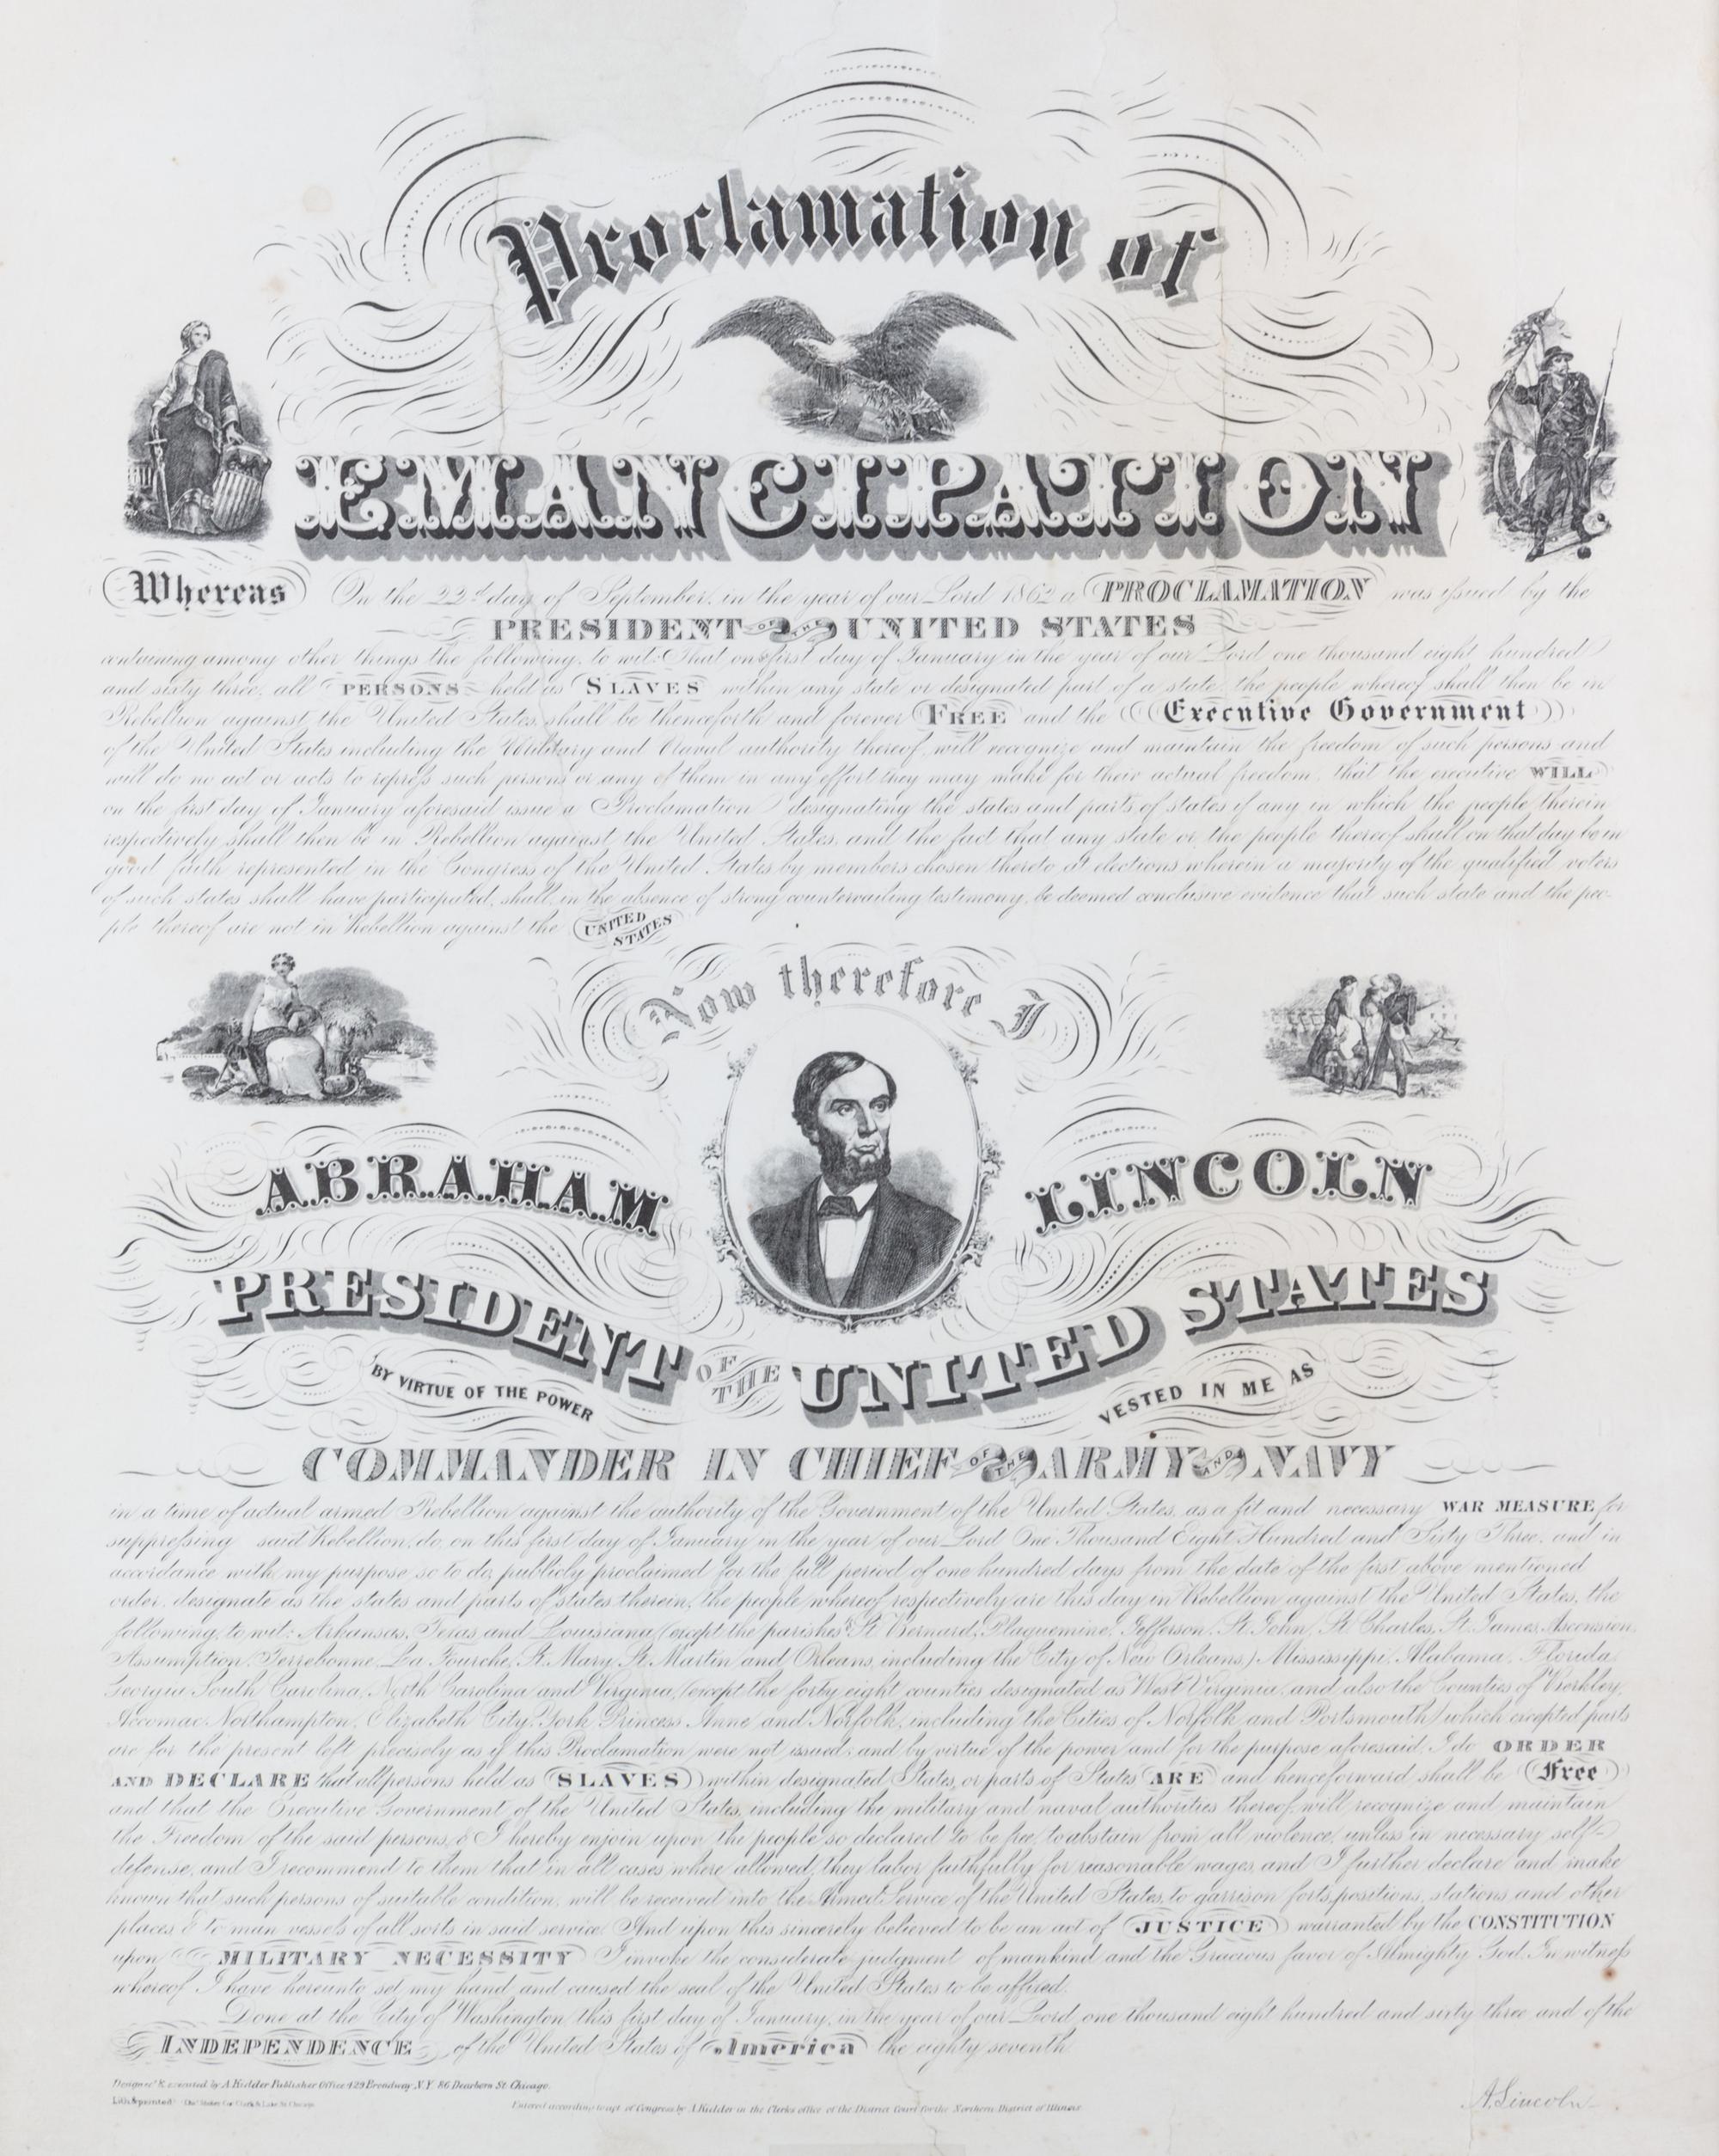 Proclamation of
EMANCIPATION
Whereas On the 22d day of September, in the year of our Lord 1862 a PROCLAMATION was issued by the
PRESIDENT OF THE UNITED STATES
containing among other things the following, to wit: That on first day of January in the year of our Lord one thousand eight hundred
and sixty three, all PERSONS held as SLAVES within any state or designated part of a state, the people whereof shall then be in
Rebellion against the United States, shall be thenceforth and forever FREE and the Executive Government
of the United States including the Military and Naval authority thereof, will recognize and maintain the freedom of such persons and
will do no act or acts to repress such persons or any of them in any effort they may make for their actual freedom, that the executive WILL
on the first day of January aforesaid issue a Proclamation designating the states and parts of states if any in which the people therein
respectively shall then be in Rebellion against the United States, and the fact that any state or the people thereof shall on that day be in
good faith represented in the Congress of the United States by members chosen thereto at elections wherein a majority of the qualified voters
of such states shall have participated, shall, in the absence of strong countervailing testimony, be deemed conclusive evidence that such state and the peo-
ple thereof are not in Rebellion against the UNITED STATES
Now therefore I
ABRAHAM LINCOLN
PRESIDENT OF THE UNITED STATES
BY VIRTUE OF THE POWER VESTED IN ME AS
COMMANDER IN CHIEF OF THE ARMY AND NAVY
in a time of actual armed Rebellion against the authority of the Government of the United States, as a fit and necessary WAR MEASURE for
suppressing said Rebellion, do, on this first day of January in the year of our Lord One Thousand Eight Hundred and Sixty Three, and in
accordance with my purpose so to do, publicly proclaimed for the full period of one hundred days from the date of the first above mentioned
order, designate as the states and parts of states therein, the people whereof respectively are this day in Rebellion against the United States, the
following, to wit: Arkansas, Texas and Louisiana (except the parishes of St. Bernard, Plaquemine, Jefferson, St. John, St. Charles, St. James, Ascension,
Assumption, Terrebonne, La Fourche, St. Mary, St. Martin and Orleans, including the City of New Orleans,) Mississippi, Alabama, Florida,
Georgia, South Carolina, North Carolina and Virginia, (except the forty eight counties designated as West Virginia, and also the Counties of Berkley,
Accomac, Northampton, Elizabeth City, York, Princess Anne and Norfolk, including the Cities of Norfolk and Portsmouth) which excepted parts
are for the present left precisely as if this Proclamation were not issued; and by virtue of the power and for the purpose aforesaid, I do ORDER
AND DECLARE that all persons held as SLAVES within designated States, or parts of States ARE and henceforward shall be Free
and that the Executive Government of the United States, including the military and naval authorities thereof, will recognize and maintain
the Freedom of the said persons, & I hereby enjoin upon the people so declared to be free, to abstain from all violence, unless in necessary self-
defense, and I recommend to them that in all cases where allowed, they labor faithfully for reasonable wages, and I further declare and make
known that such persons of suitable condition, will be received into the Armed Service of the United States, to garrison forts, positions, stations and other
places & to man vessels of all sorts in said service And upon this sincerely believed to be an act of JUSTICE warranted by the CONSTITUTION
upon MILITARY NECESSITY I invoke the considerate judgment of mankind and the Gracious favor of Almighty God. In witness
whereof I have hereunto set my hand and caused the seal of the United States to be affixed.
Done at the City of Washington this first day of January, in the year of our Lord, one thousand eight hundred and sixty three and of the
INDEPENDENCE of the United States of America the eighty seventh.
Designed & executed by A. Kidder Publisher Office 429 Broadway N.Y. 86 Dearborn St. Chicago.
Lith & printed Clark & Lake St. Chicago
Entered according to act of Congress by A. Kidder in the Clerks office of the District Court for the Northern District of Illinois
A. Lincoln